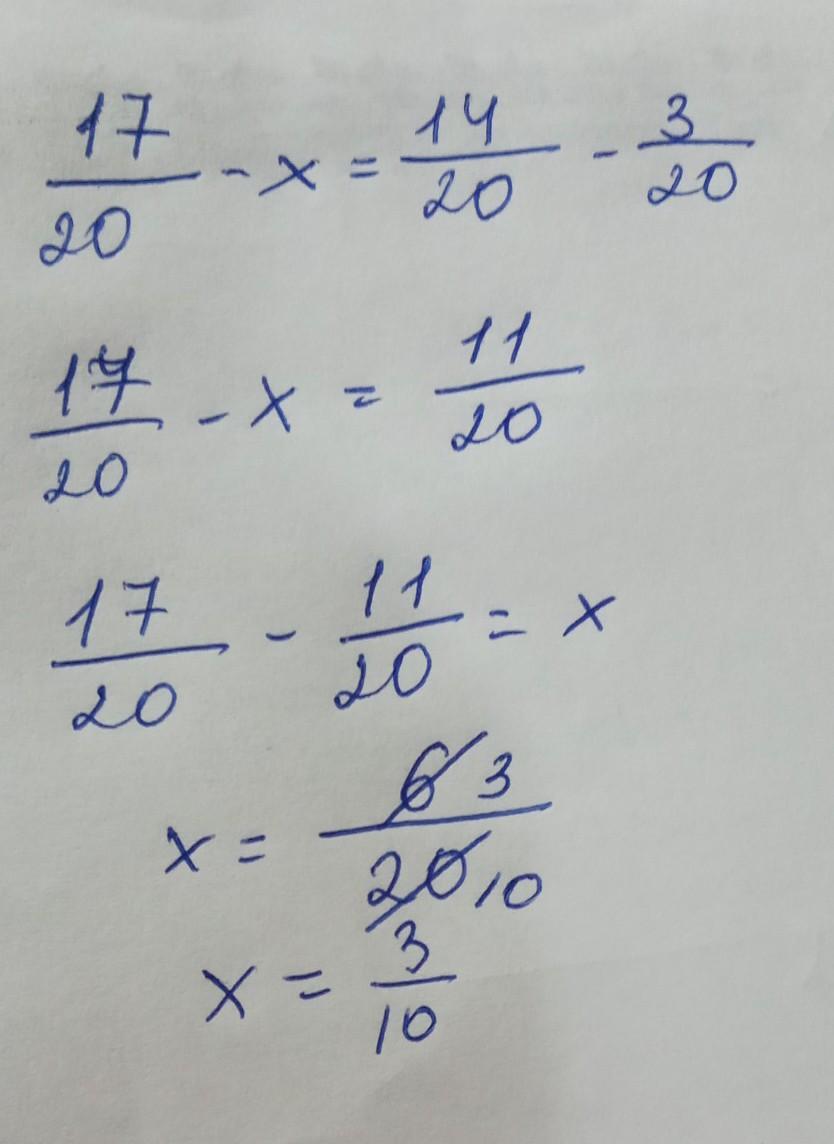 17/20 - x = 14/20 - 3/20
17/20 - x = 11/20
17/20 - 11/20 = x
x = 6 3/20 10
x = 3/10